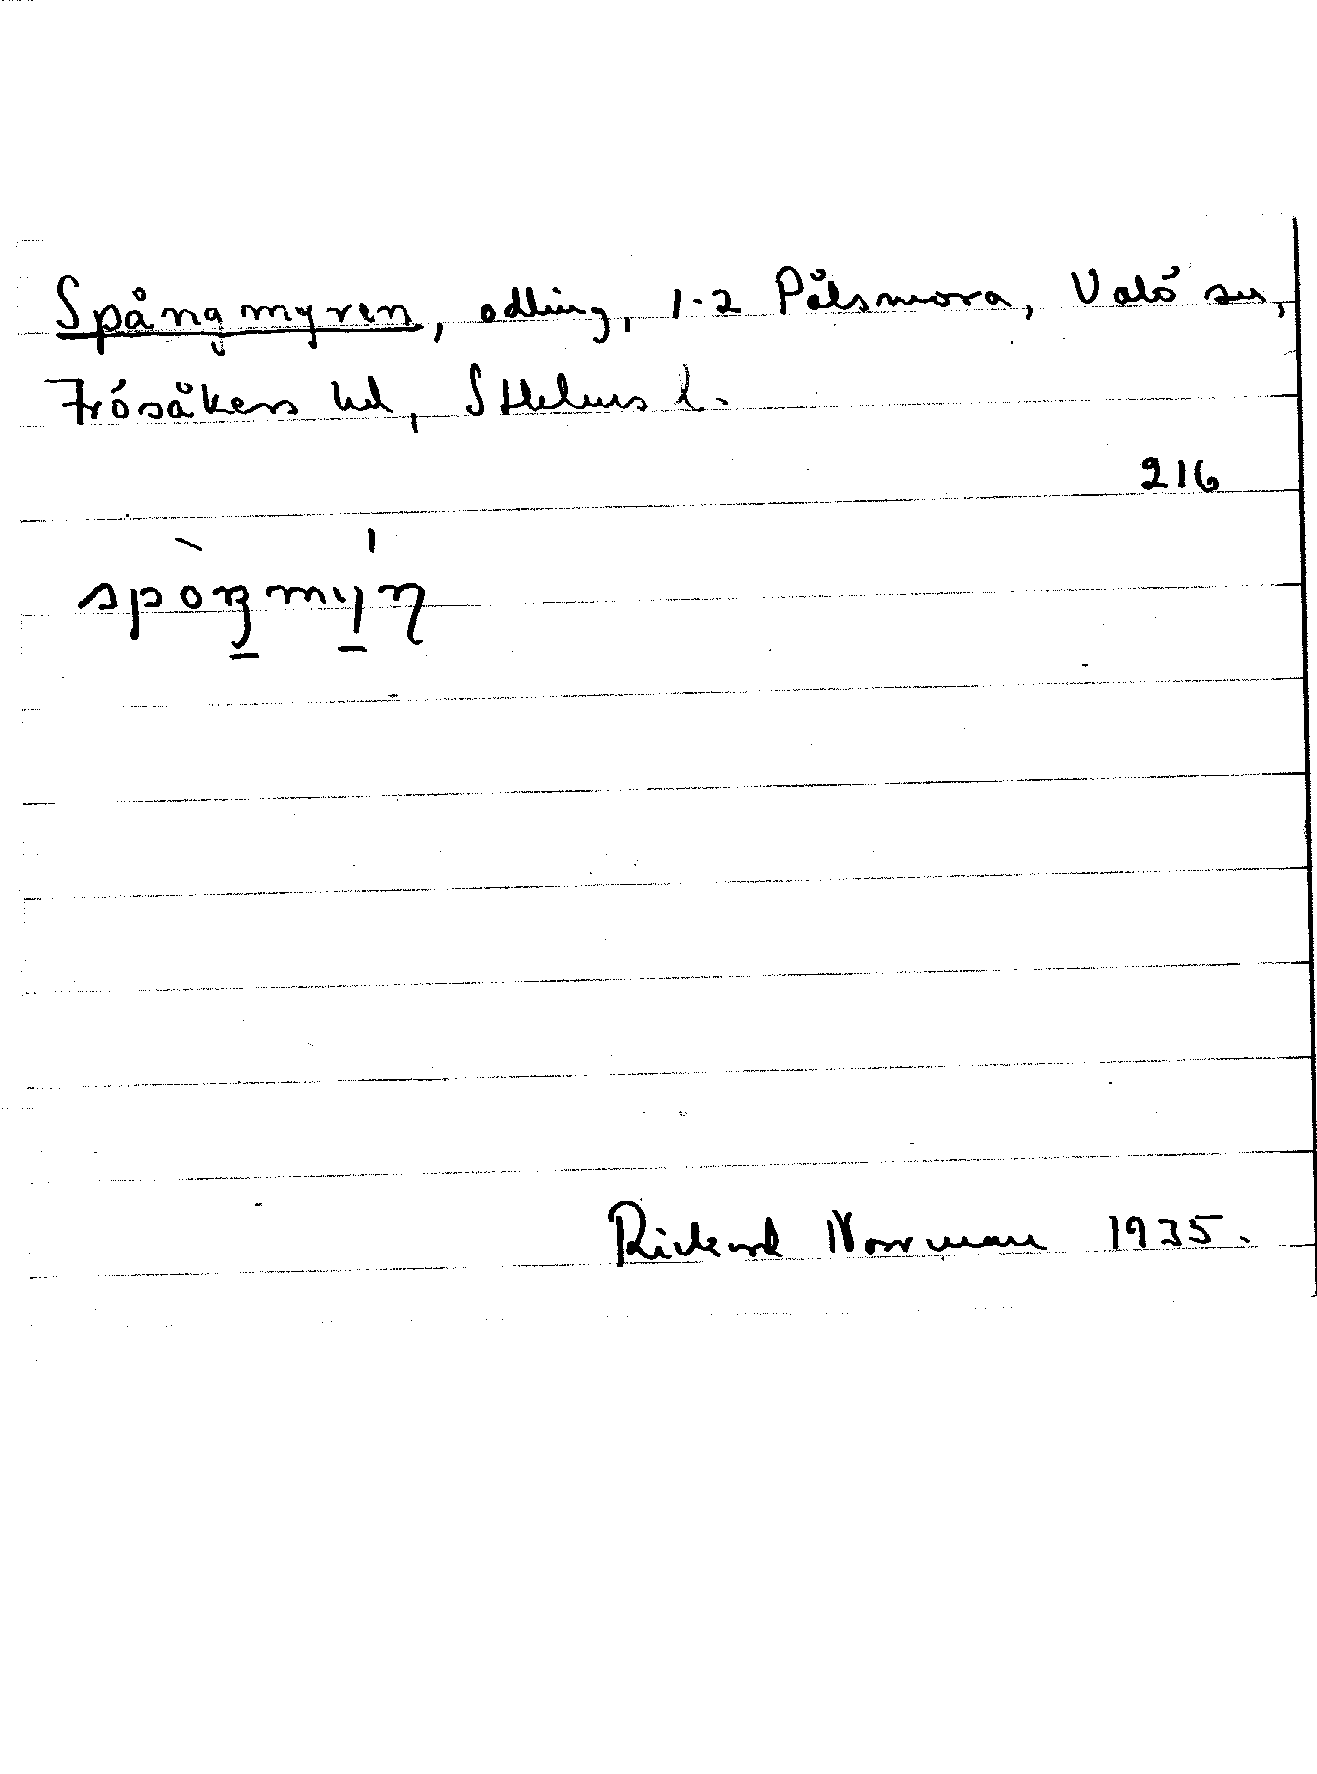 Spångmyren, odling, 1-2 Pålsmora, Valö sn,
Frösåkers hd, Sthlms l.
216
spòŋmyn
Rickard Norrman 1935.